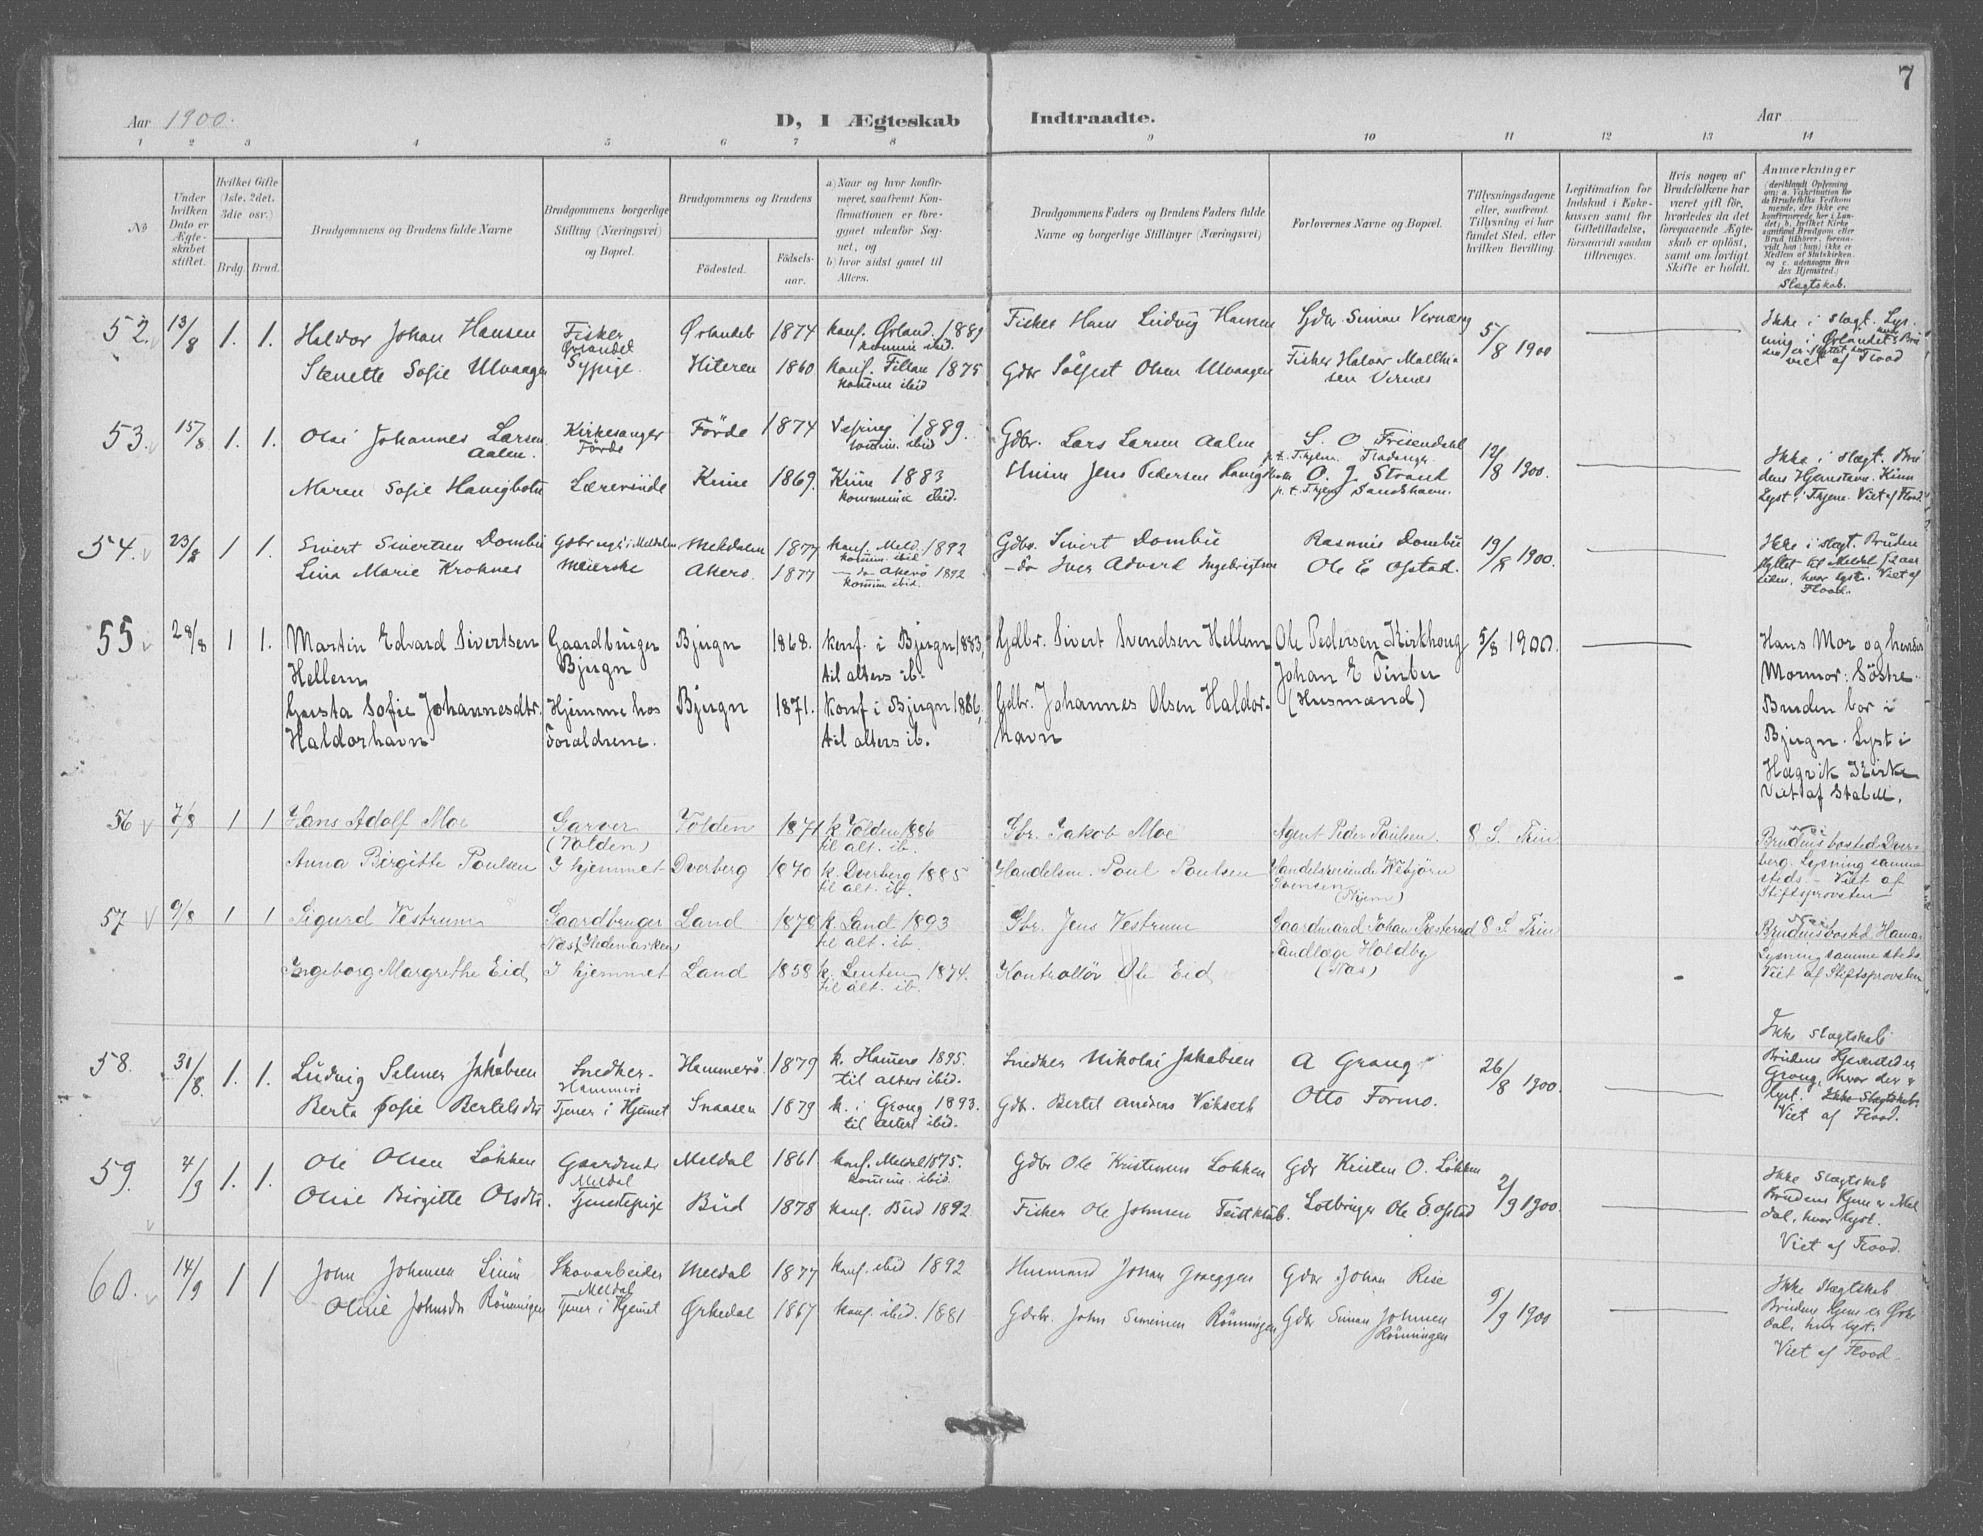 7
Aar 1900.
D, I Ægteskab Indtraadte.
Aar
1 2 3 4 5 6 7 8 9 10 11 12 13 14
No
Under hvilken Dato er Ægteskabet stiftet.
Hvilket Gifte (1ste, 2det, 3die osv.)
Brdg. Brud.
Brudgommens og Brudens fulde Navne
Brudgommens borgerlige Stilling (Næringsvei) og Bopæl.
Brudgommens og Brudens
Fødested. Fødselsaar.
a) Naar og hvor konfirmeret, saafremt Konfirmationen er foregaaet udenfor Sognet, og
b) hvor sidst gaaet til Alters.
Brudgommens Faders og Brudens Faders fulde Navne og borgerlige Stillinger (Næringsvei)
Forlovernes Navne og Bopæl.
Tillysningsdagene eller, saafremt Tillysning ei har fundet Sted, efter hvilken Bevilling
Legitimation for Indskud i Enkekassen samt for Giftetilladelse, forsaavidt saadan tiltrænges.
Hvis nogen af Brudefolkene har været gift før, hvorledes da det foregaaende Ægteskab er opløst, samt om lovligt Skifte er holdt.
Anmærkninger
Slægtskab.
52. 13/8 1. 1. Haldor Johan Hansen Fisker Ørlandet Ørlandet 1874 konf. Ørland. 1889 komm. ibid. Fisker Hans Ludvig Hansen Gdbr. Simon Vernæng 5/8 1900
Senette Sofie Ulvaagen Sypige. Hiteren 1860 konf. Fillan 1875 komm ibid Gdbr Sølfest Olsen Ulvaagen Fisker Halvor Mathisen Vernes
Ikke i slægt. Lysning i Ørlandet
viet af Flood
53. 15/8 1. 1. Olai Johannes Larsen Aalen. Kirkesanger Førde Førde 1874 Vefring 1889. komm. ibid Gdbr. Lars Larsen Aalen S. O. Frisendahl p.t. Thjem. Fladanger 12/8 1900.
Maren Sofie Havigbotn Lærerinde Kinn 1869. Kinn 1883 kommun. ibid. Husm Jens Pedersen Havigbotn O. J. Strand p.t. Thjem Sandshavn.
Ikke i slægt. Brudens Hjemstavn. Kinn
Lyst i Thjem. Viet af Flood.
54. 23/8 1 1. Sivert Sivertsen Dombu Gdbruger i Meldalen Meldalen 1877 konf. Meld. 1892 komm ibid Gdbr. Sivert Dombu Rasmus Dombu 19/8 1900.
Lina Marie Krohnes Meierske Akerø. 1877 — do Akerø 1892 komm. ibid. — do Iver Adverd Ingebrigtsen Ole E Ofstad.
Ikke i slægt. Bruden flyttet til Meldal
hvor lyst. Viet af Flood.
55 28/8 1 1. Martin Edvard Sivertsen Hellem Gaardbruger Bjugn Bjugn 1868. konf. i Bjugn 1883, til alters ib. Gdbr. Sivert Svendsen Hellem Ole Pedersen Kirkhaug 5/8 1900.
Gusta Sofie Johannesdtr. Haldorhavn Hjemme hos Foraldrene. Bjugn 1871. Konf i Bjugn 1886, til alters ib. Gdbr. Johannes Olsen Haldorhavn Johan E Tinbu (Husmænd)
Hans Mor og hendes
Mormor: Søstre.
Bruden bor i
Bjugn. Lyst i
Hegvik Kirke
Viet af Stabell.
56 7/8 1 1 Hans Adolf Moe Garver (Volden) Volden 1871 k. Volden 1886 til alt. ib. Gbr. Jakob Moe Agent Peder Paulsen. 8 S. Trin
Anna Birgitte Paulsen I hjemmet Dverberg 1870 k. Dverberg 1885 til alt. ib. Handelsm. Poul Paulsen Handelsreisende Vebjørn Svensen (Thjem)
Brudens bosted Dverberg. Lysning sammesteds. — Viet af
Stiftsprovsten
57 9/8 1 1 Sigurd Vestrum Gaardbruger Næs (Hedemarken) Land 1878 k. Land 1893 til alt. ib. Gbr. Jens Vestrum Gaardmand Johan Presterud 8 S. Trin
Ingeborg Margrethe Eid I hjemmet Land 1858 k. Leuten 1874. til alt. ib. Kontrollør Ole Eid Tandlæge Holdby (Næs)
Brudens bosted Hamar
Lysning samme steds.
Viet af Stiftsprovsten
58. 31/8. 1. 1. Ludvig Selmer Jakobsen Snedker. Hammerø Hammerø. 1879 k. Hamerø 1895. til alters ibid. Snedker Nikolai Jakobsen A Grong 26/8 1900.
Berta Sofie Bertelsdtr Tjener i Hjemet Snaasen 1879 k. i Grong 1893. til alters ibid. Gdb. Bertel Andreas Vikseth Otto Formo.
Ikke Slægtskab
Brudens Hjemsted er
Grong, hvor der er
lyst. Ikke Slægtskab.
Viet af Flood.
59. 4/9 1. 1. Ole Olsen Løkken Gaardmand Meldal Meldal 1861 konf. Meldal 1875. komm. ibid. Gdbr Ole Kristensen Løkken Gdr Kristen O. Løkken 2/9 1900.
Oline Birgitte Olsdtr. Tjenestepige Bud 1878 konf. Bud 1892. Fisker Ole Johnsen Lotbruger Ole E. Ofstad
Ikke Slægtskab
Brudens Hjem er Meldal, hvor lyst.
Viet af Flood.
60. 14/9 1 1 John Johnsen Skovarbeider Meldal Meldal 1877 konf. ibid 1892 Husmand Johan Gdbr Johan Rise 9/9 1900
Oline Johnsdtr Rønningen Tjener i Hjemet Ørkedal 1867 konf. ibid. 1881 Gdbr. John Simensen Rønningen Gdbr Simon Johnsen Rønningen
Ikke Slægtskab
Brudens Hjem er Ørkedal. hvor lyst.
Viet af Flood.